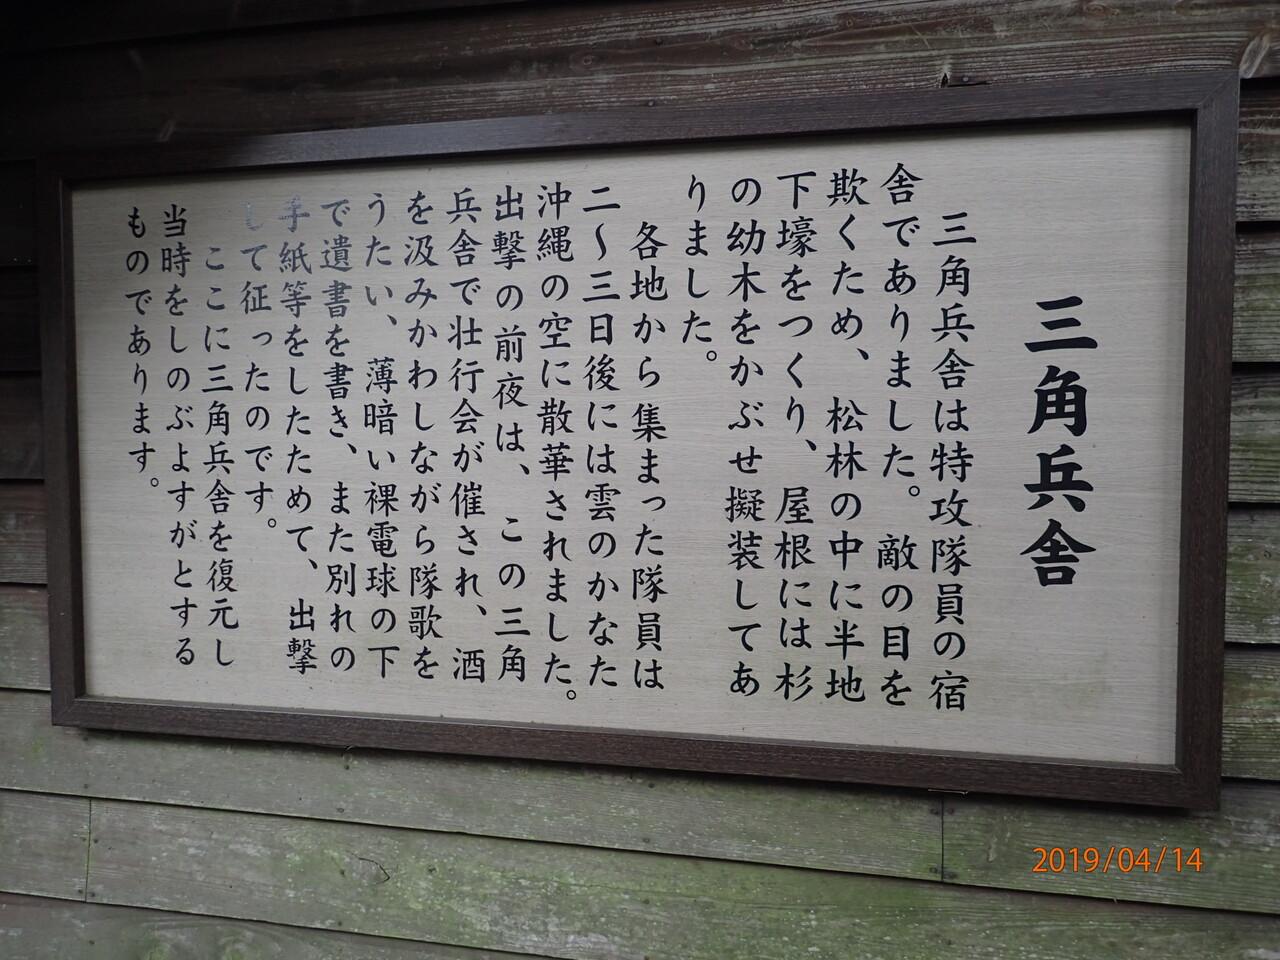 三角兵舎
三角兵舎は特攻隊員の宿
舎でありました。敵の目を
欺くため、松林の中に半地
下壕をつくり、屋根には杉
の幼木をかぶせ擬装してあ
りました。
各地から集まった隊員は
二～三日後には雲のかなた
沖縄の空に散華されました。
出撃の前夜は、この三角
兵舎で壮行会が催され、酒
を汲みかわしながら隊歌を
うたい、薄暗い裸電球の下
で遺書を書き、また別れの
手紙等をしたためて、出撃
して征ったのです。
ここに三角兵舎を復元し
当時をしのぶよすがとする
ものであります。
2019/04/14